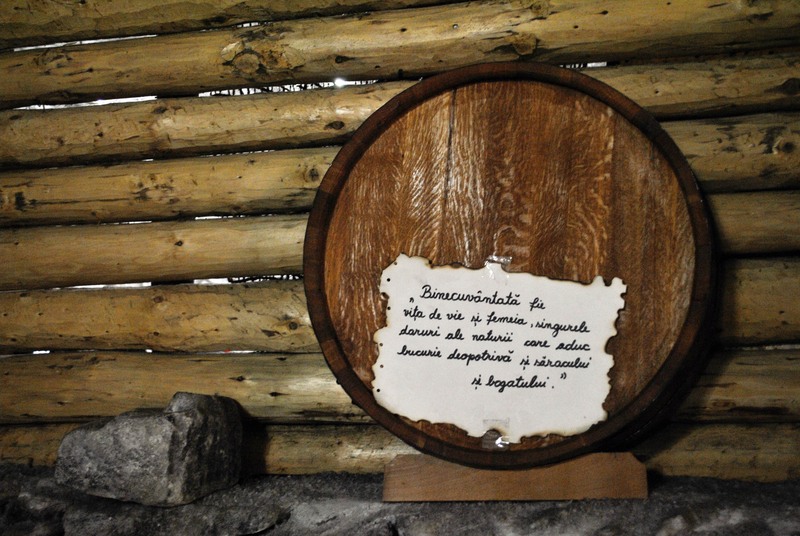 „Binecuvântată fie
vița de vie și femeia, singurele
daruri ale naturii care aduc
bucurie deopotrivă și săracului
și bogatului."